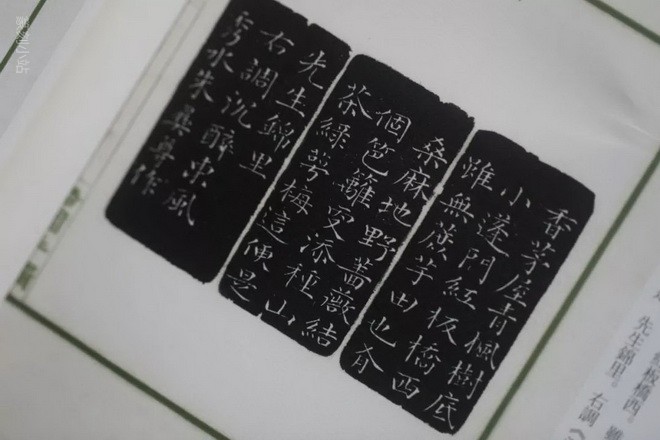 香茅屋青楓樹底
小蓬門紅板橋西
雖無蔗芋田也有
桑麻地野薔薇結
個笆籬更添種山
茶綠萼梅這便是
先生錦里
右調沉醉東風
秀水朱彝尊作
板橋西。雖
先生錦里。右調《